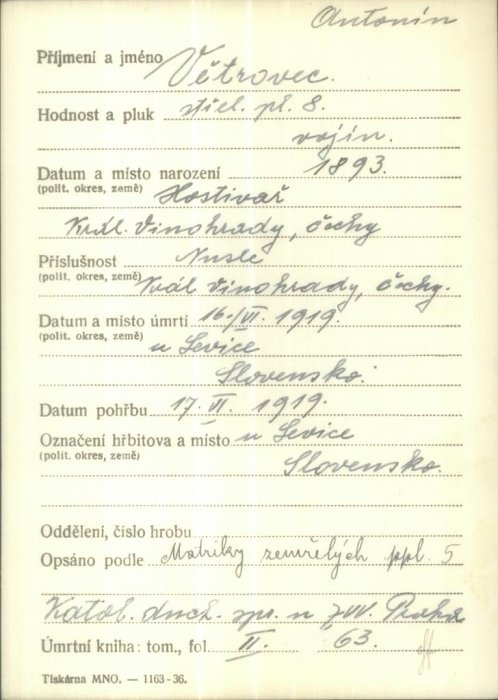 Antonín
Příjmení a jméno Větrovec.
Hodnost a pluk střel. pl. 8.
vojín.
Datum a místo narození 1893.
(polit. okres, země) Hostivař
Král. Vinohrady, Čechy
Příslušnost Nusle
(polit. okres, země) Král. Vinohrady, Čechy.
Datum a místo úmrtí 16./VI. 1919.
(polit. okres, země) u Levice
Slovensko.
Datum pohřbu 17. VI. 1919.
Označení hřbitova a místo u Levice
(polit. okres, země) Slovensko.
Oddělení, číslo hrobu
Opsáno podle Matriky zemřelých ppl. 5
Katol. duch. spr. u ZVV. Praha
Úmrtní kniha: tom., fol. II. 63.
Tiskárna MNO. — 1163-36.